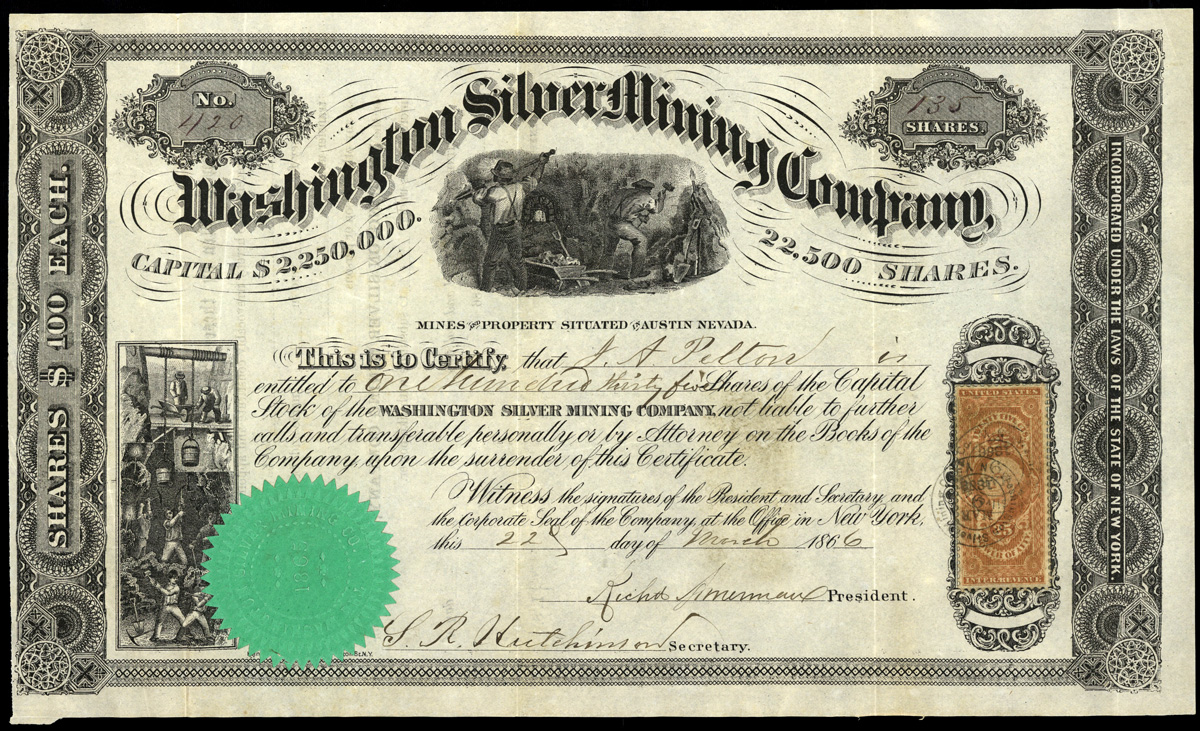 No.
420
135
SHARES.
Washington Silver Mining Company,
CAPITAL $2,250,000.
22,500 SHARES.
SHARES $100 EACH.
INCORPORATED UNDER THE LAWS OF THE STATE OF NEW YORK.
MINES AND PROPERTY SITUATED AT AUSTIN NEVADA.
This is to Certify, that J. A. Pelton is
entitled to One hundred thirty five Shares of the Capital
Stock of the WASHINGTON SILVER MINING COMPANY, not liable to further
calls and transferable personally or by Attorney on the Books of the
Company upon the surrender of this Certificate.
Witness the signatures of the President and Secretary, and
the Corporate Seal of the Company, at the Office in New York,
this 22d day of March 1866
Richd President.
S. R. Hutchinson Secretary.
UNITED STATES
25
INTER. REVENUE